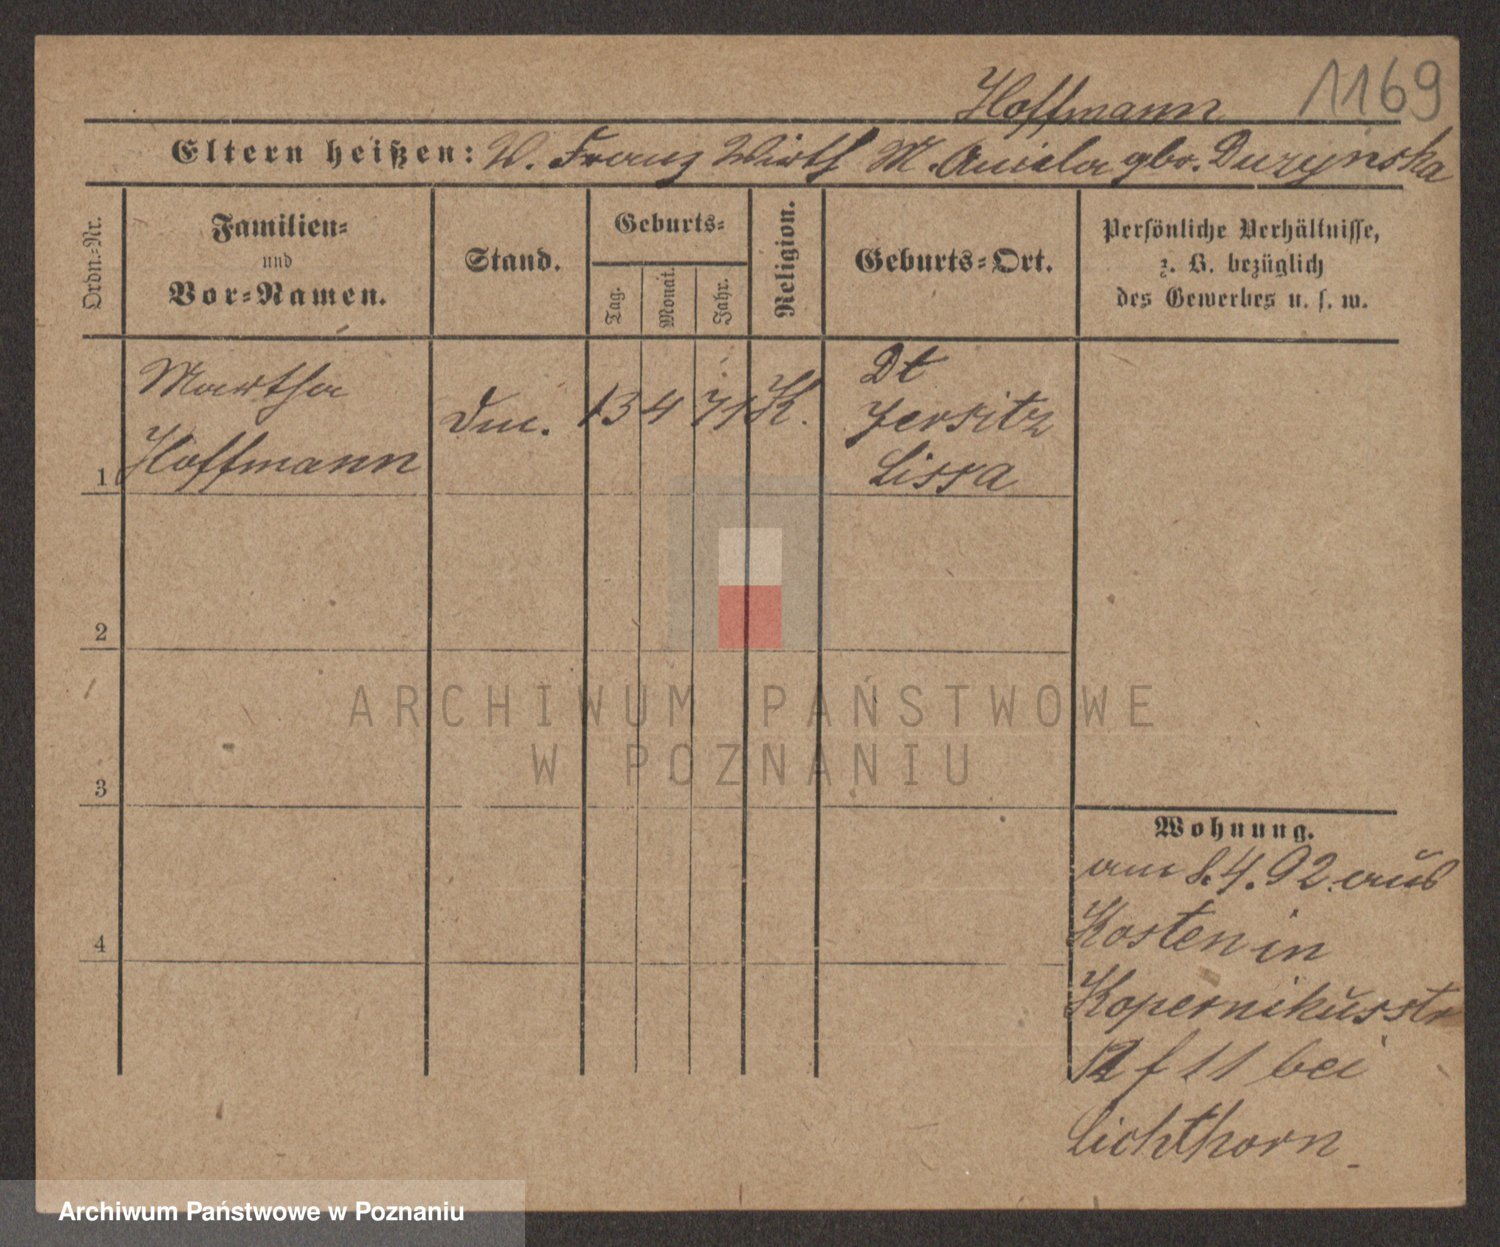 Hoffmann 1169
Eltern heißen: V. Franz Wirth M. Aniela gbr. Duzyńska
Ordn.-Nr.
Familien-
und
Vor-Namen.
Stand.
Geburts-
Tag.
Monat.
Jahr.
Religion.
Geburts-Ort.
Persönliche Verhältnisse,
z. B. bezüglich
des Gewerbes u. s. w.
Martha
Hoffmann
1
13 4 71 K.
Dt
Jersitz
Lissa
2
3
4
Wohnung.
am 8.4.92. aus
Kosten in
Kopernikusstr
f 11 bei
Lichthorn
ARCHIWUM PAŃSTWOWE
W POZNANIU
Archiwum Państwowe w Poznaniu